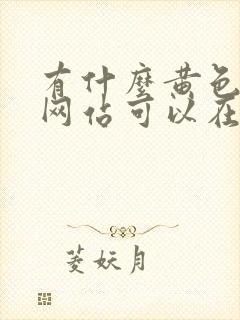 有什麼黄色
网佔可以在
菱妖月